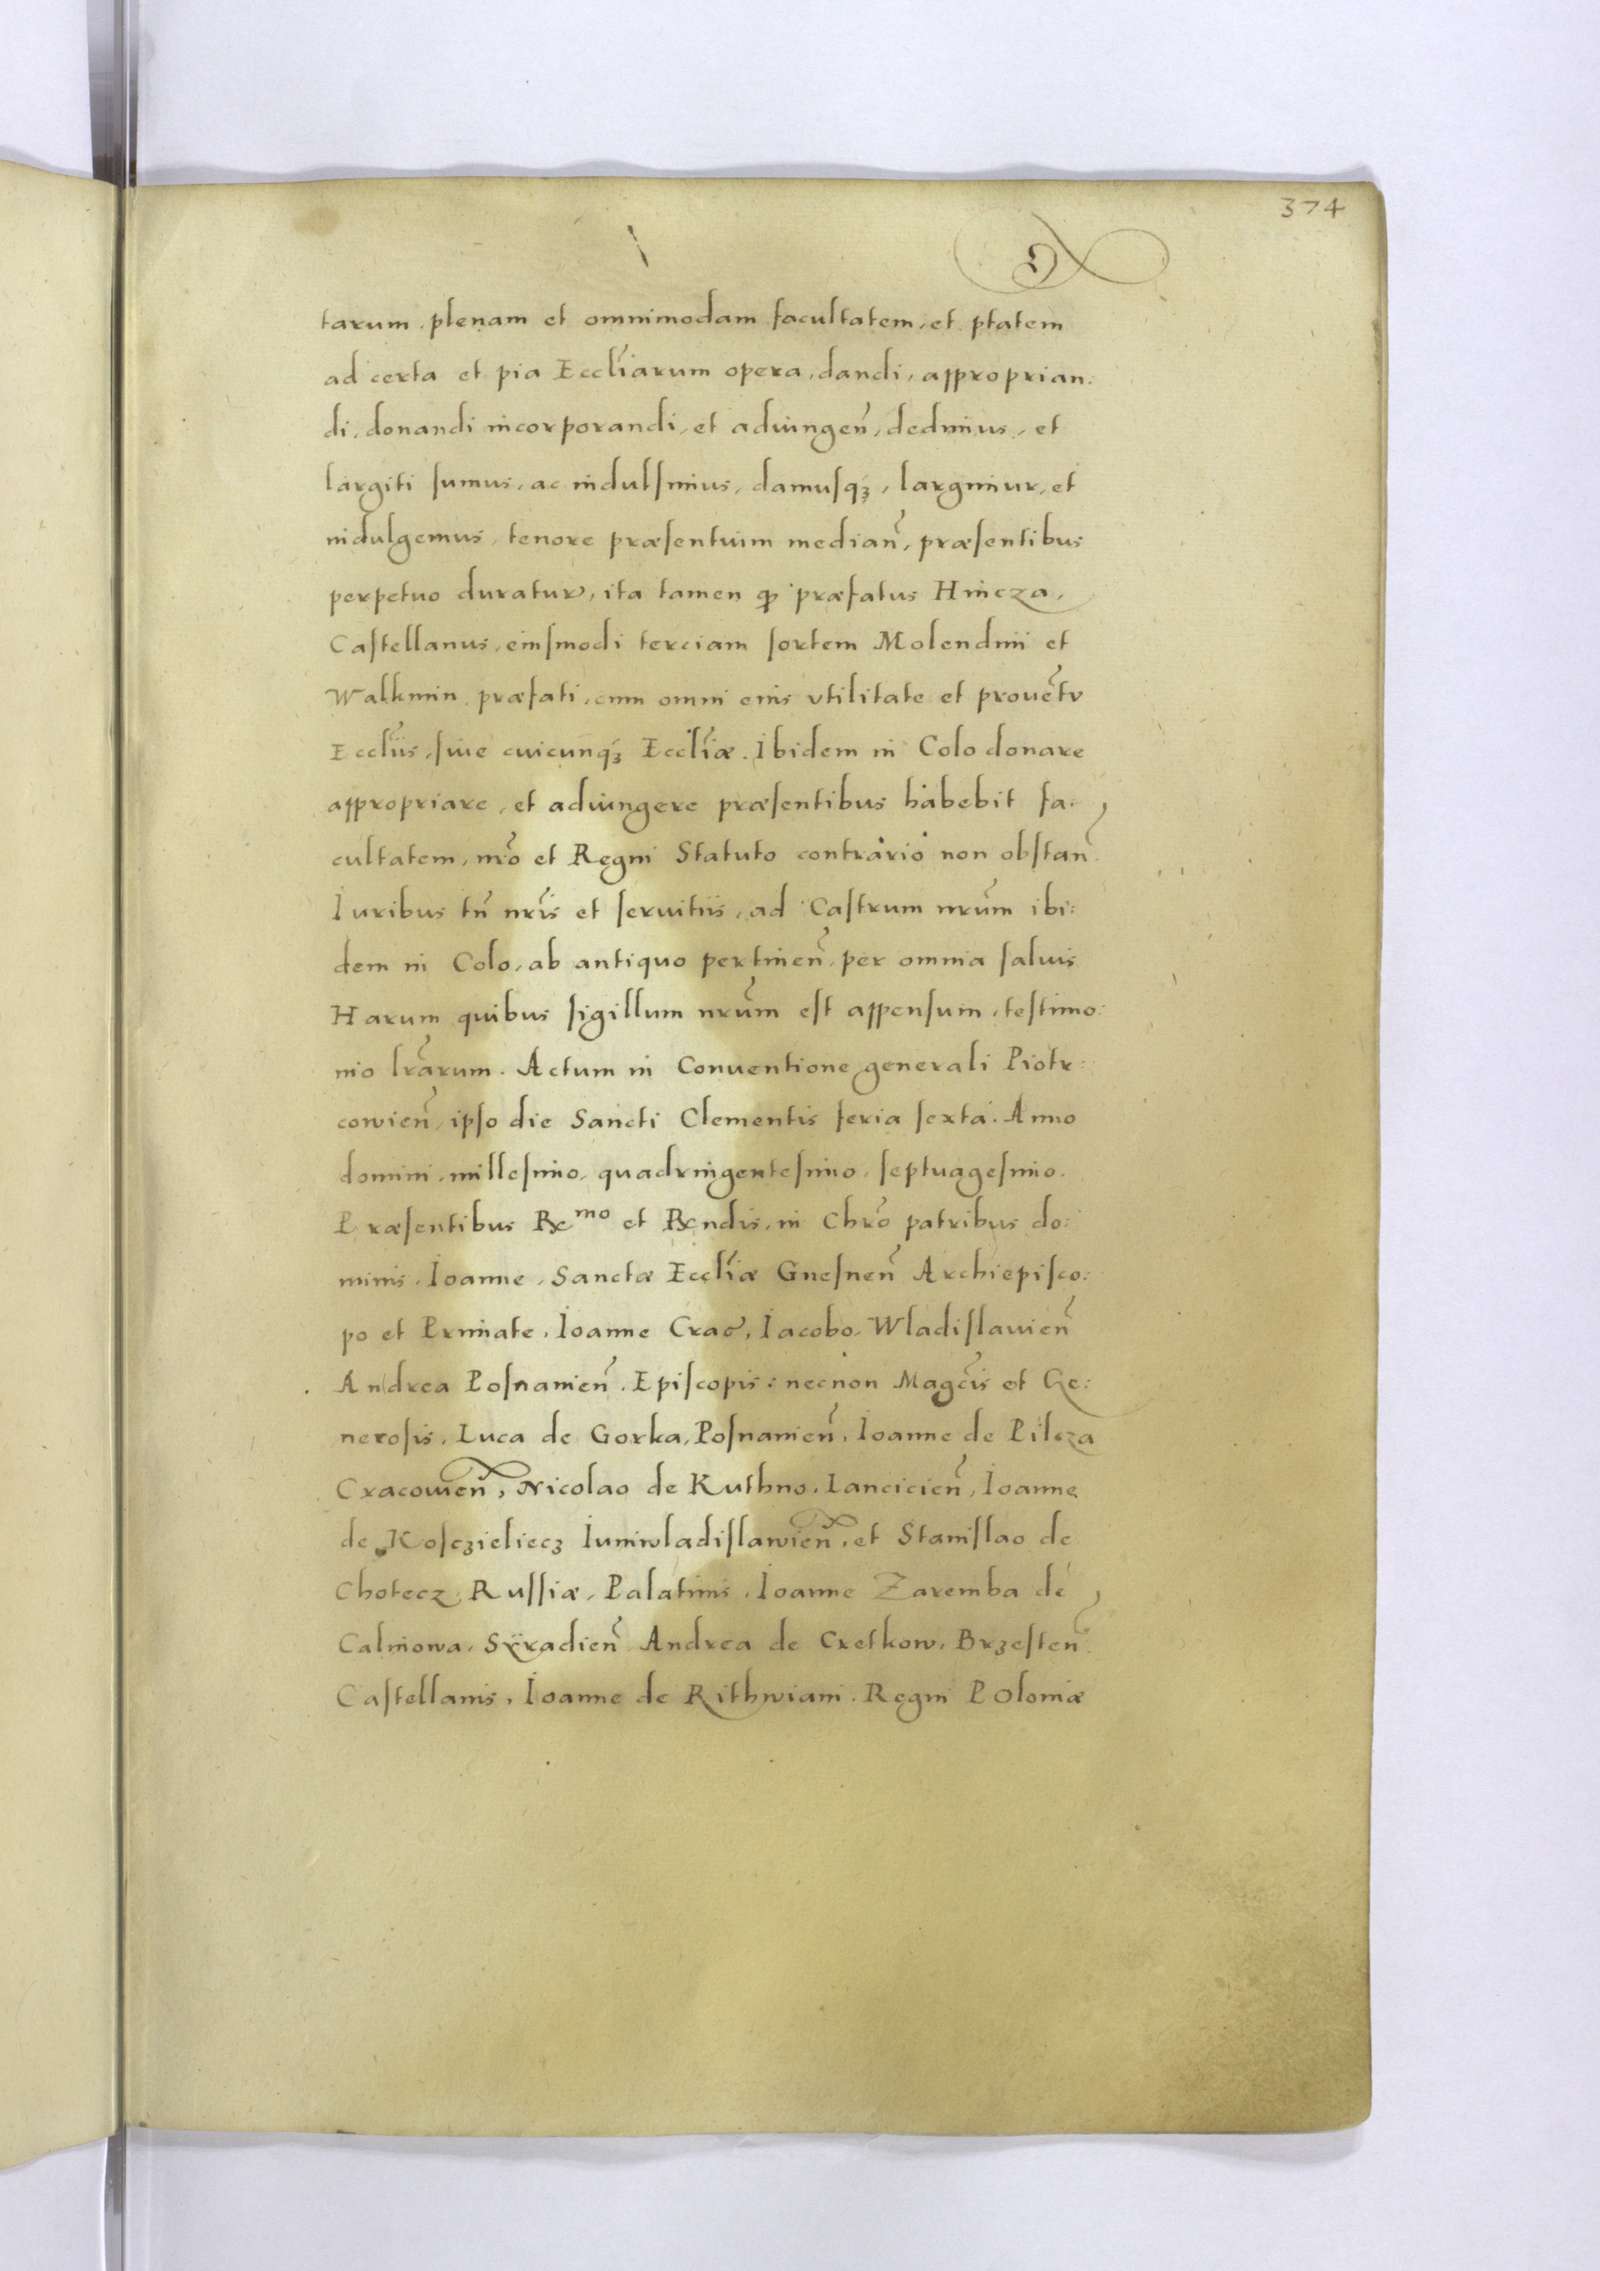 374
tarum, plenam et omnimodam facultatem, et ptatem
ad certa et pia Eccl̃iarum opera, dandi, approprian:
di, donandi incorporandi, et adiungeñ, dedimus, et
largiti sumus, ac indulsimus, damusqꝫ, largimur, et
indulgemus, tenore præsentium mediañ, præsentibus
perpetuo duratur, ita tamen ꝙ præfatus Hincza,
Castellanus, eiusmodi terciam sortem Molendini et
Walkmin præfati, cum omni eius vtilitate et prouẽtu
Eccl̃iis, siue cuicunqꝫ Eccl̃iæ. Ibidem in Colo donare
appropriare, et adiungere præsentibus habebit fa:
cultatem, nr̃o et Regni Statuto contrario non obstañ.
Iuribus tñ nr̃is et seruitiis, ad Castrum nr̃um ibi:
dem in Colo, ab antiquo pertineñ, per omnia saluis
Harum quibus sigillum nr̃um est appensum, testimo:
nio lr̃arum. Actum in Conuentione generali Piotr:
cowieñ, ipso die Sancti Clementis feria sexta. Anno
domini, millesimo, quadringentesimo, septuagesimo.
Præsentibus Re^mo et Rendis, in Chr̃o patribus do:
minis, Ioanne, Sanctæ Eccl̃iæ Gnesneñ Archiepisco:
po et Primate, Ioanne Crac̃, Iacobo, Wladislauieñ
Andrea Posnanieñ. Episcopis: necnon Magc̃is et Ge:
nerosis, Luca de Gorka, Posnanieñ, Ioanne de Pilcza
Cracouieñ, Nicolao de Kuthno, Lancicieñ, Ioanne
de Kosczieliecz Iuniwladislawieñ, et Stanislao de
Chotecz, Russiæ, Palatinis, Ioanne Zaremba de
Calinowa, Syradieñ Andrea de Cretkow, Brzesteñ
Castellanis, Ioanne de Rithwiani. Regni Poloniæ